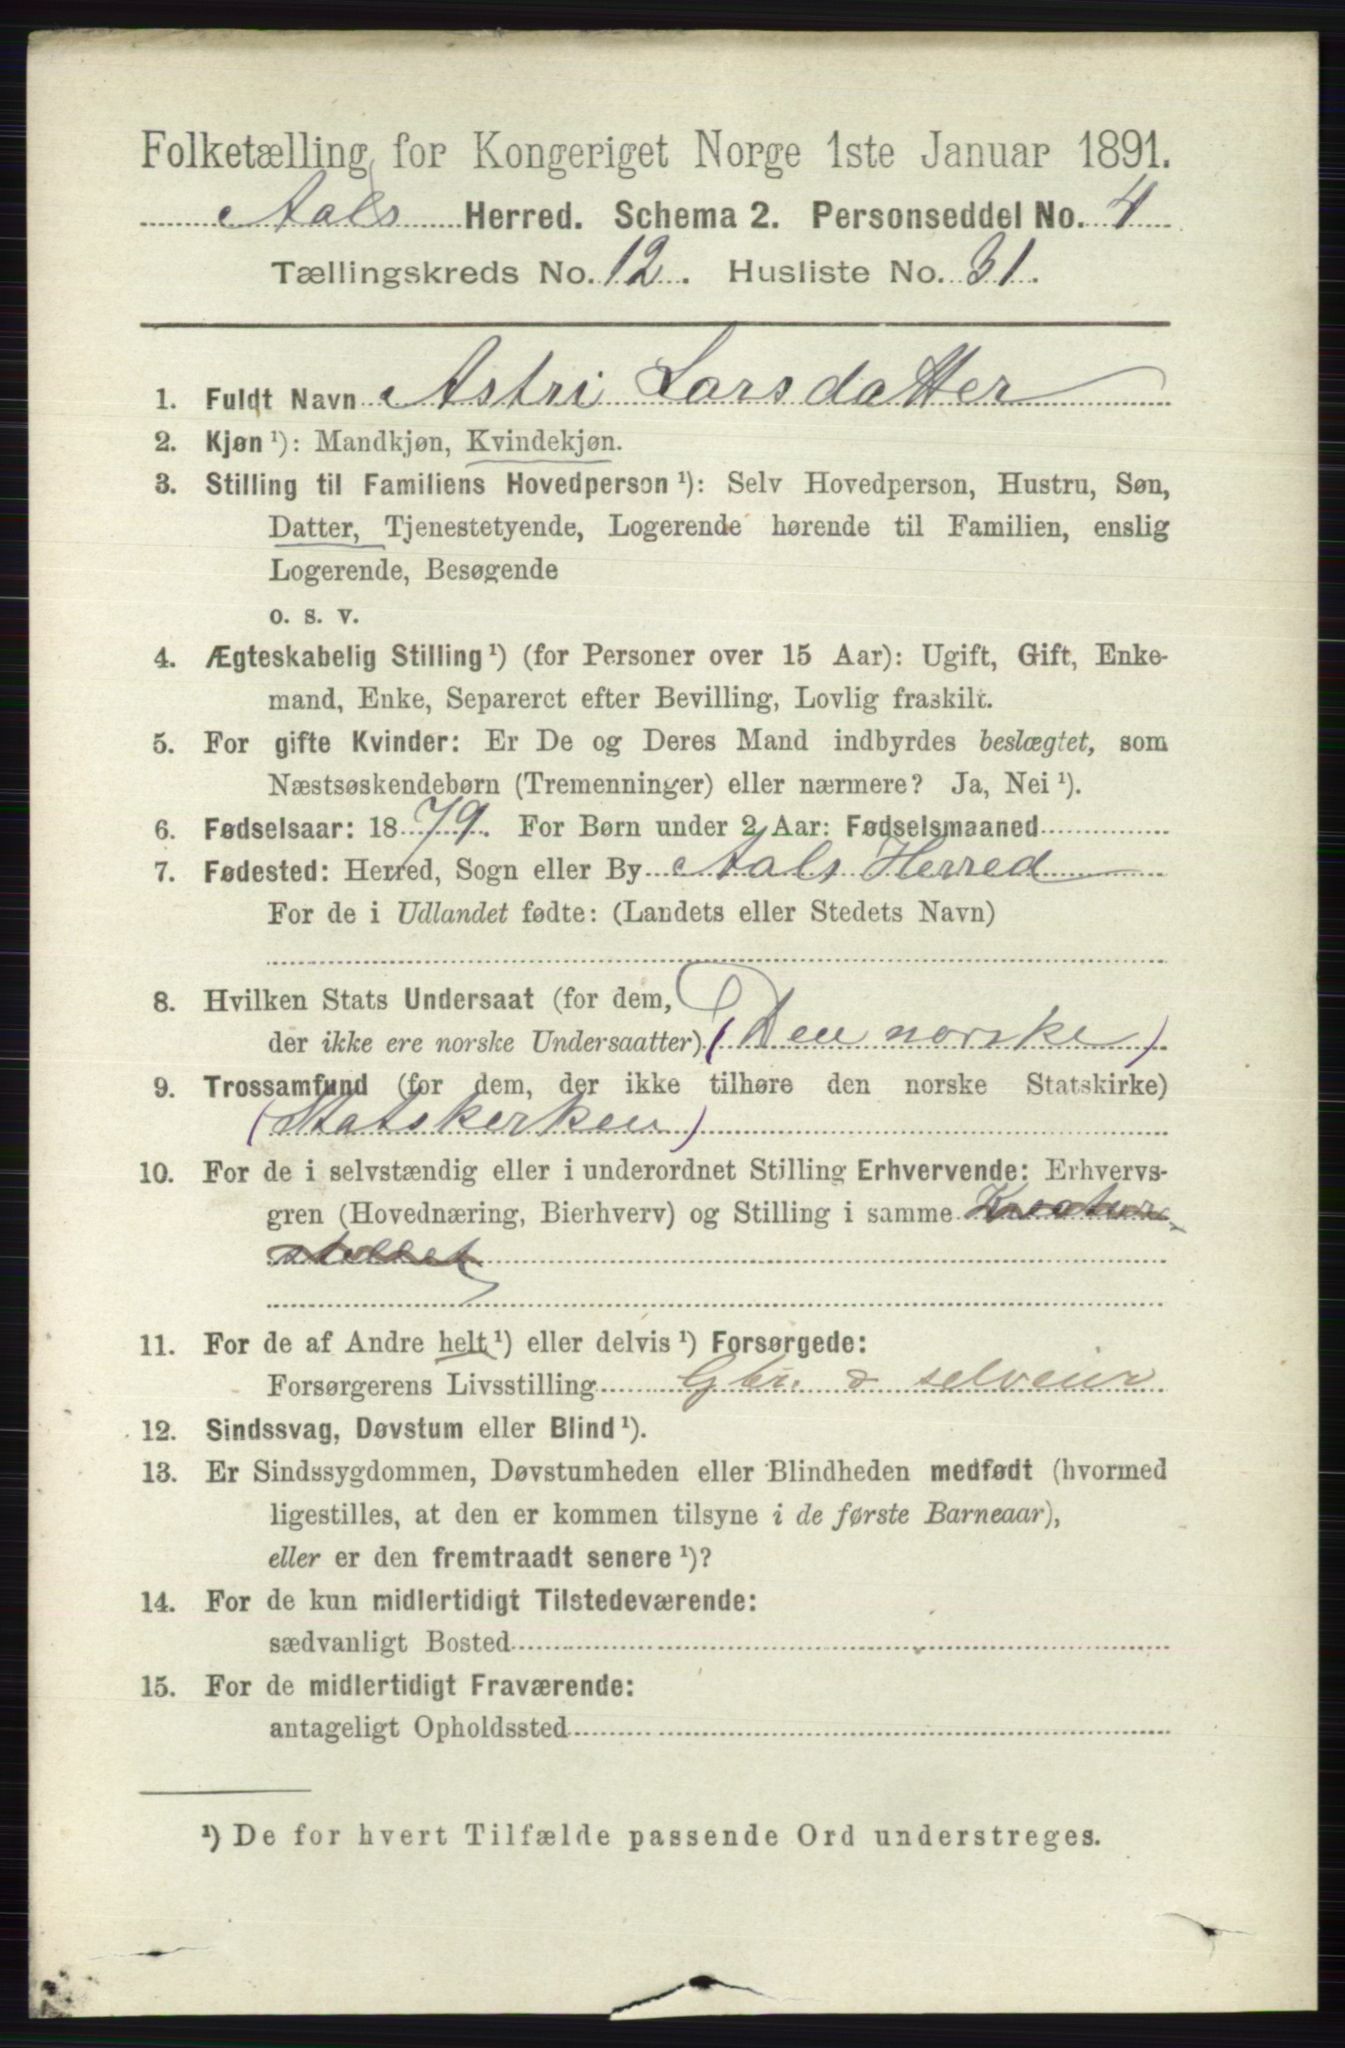 Folketælling for Kongeriget Norge 1ste Januar 1891.
Aals Herred. Schema 2. Personseddel No. 4
Tællingskreds No. 12. Husliste No. 31.
1. Fuldt Navn Astri Larsdatter
2. Kjøn ¹): Mandkjøn, Kvindekjøn.
3. Stilling til Familiens Hovedperson ¹): Selv Hovedperson, Hustru, Søn,
Datter, Tjenestetyende, Logerende hørende til Familien, enslig
Logerende, Besøgende
o. s. v.
4. Ægteskabelig Stilling ¹) (for Personer over 15 Aar): Ugift, Gift, Enke-
mand, Enke, Separeret efter Bevilling, Lovlig fraskilt.
5. For gifte Kvinder: Er De og Deres Mand indbyrdes beslægtet, som
Næstsøskendebørn (Tremenninger) eller nærmere? Ja, Nei ¹).
6. Fødselsaar: 1879. For Børn under 2 Aar: Fødselsmaaned
7. Fødested: Herred, Sogn eller By Aals Herred
For de i Udlandet fødte: (Landets eller Stedets Navn)
8. Hvilken Stats Undersaat (for dem,
der ikke ere norske Undersaatter) (Den norske)
9. Trossamfund (for dem, der ikke tilhøre den norske Statskirke)
(Statskerken)
10. For de i selvstændig eller i underordnet Stilling Erhvervende: Erhvervs-
gren (Hovednæring, Bierhverv) og Stilling i samme Kreatur-
stellet
11. For de af Andre helt ¹) eller delvis ¹) Forsørgede:
Forsørgerens Livsstilling Gbr. & selveier
12. Sindssvag, Døvstum eller Blind ¹).
13. Er Sindssygdommen, Døvstumheden eller Blindheden medfødt (hvormed
ligestilles, at den er kommen tilsyne i de første Barneaar),
eller er den fremtraadt senere ¹)?
14. For de kun midlertidigt Tilstedeværende:
sædvanligt Bosted
15. For de midlertidigt Fraværende:
antageligt Opholdssted
¹) De for hvert Tilfælde passende Ord understreges.